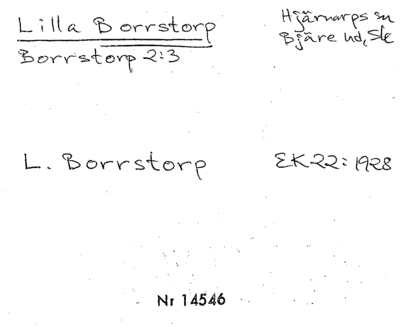 Lilla Borrstorp
Hjärnarps sn
Bjäre hd, Sk
Borrstorp 2:3
L. Borrstorp
EK 22: 1928
Nr 14546